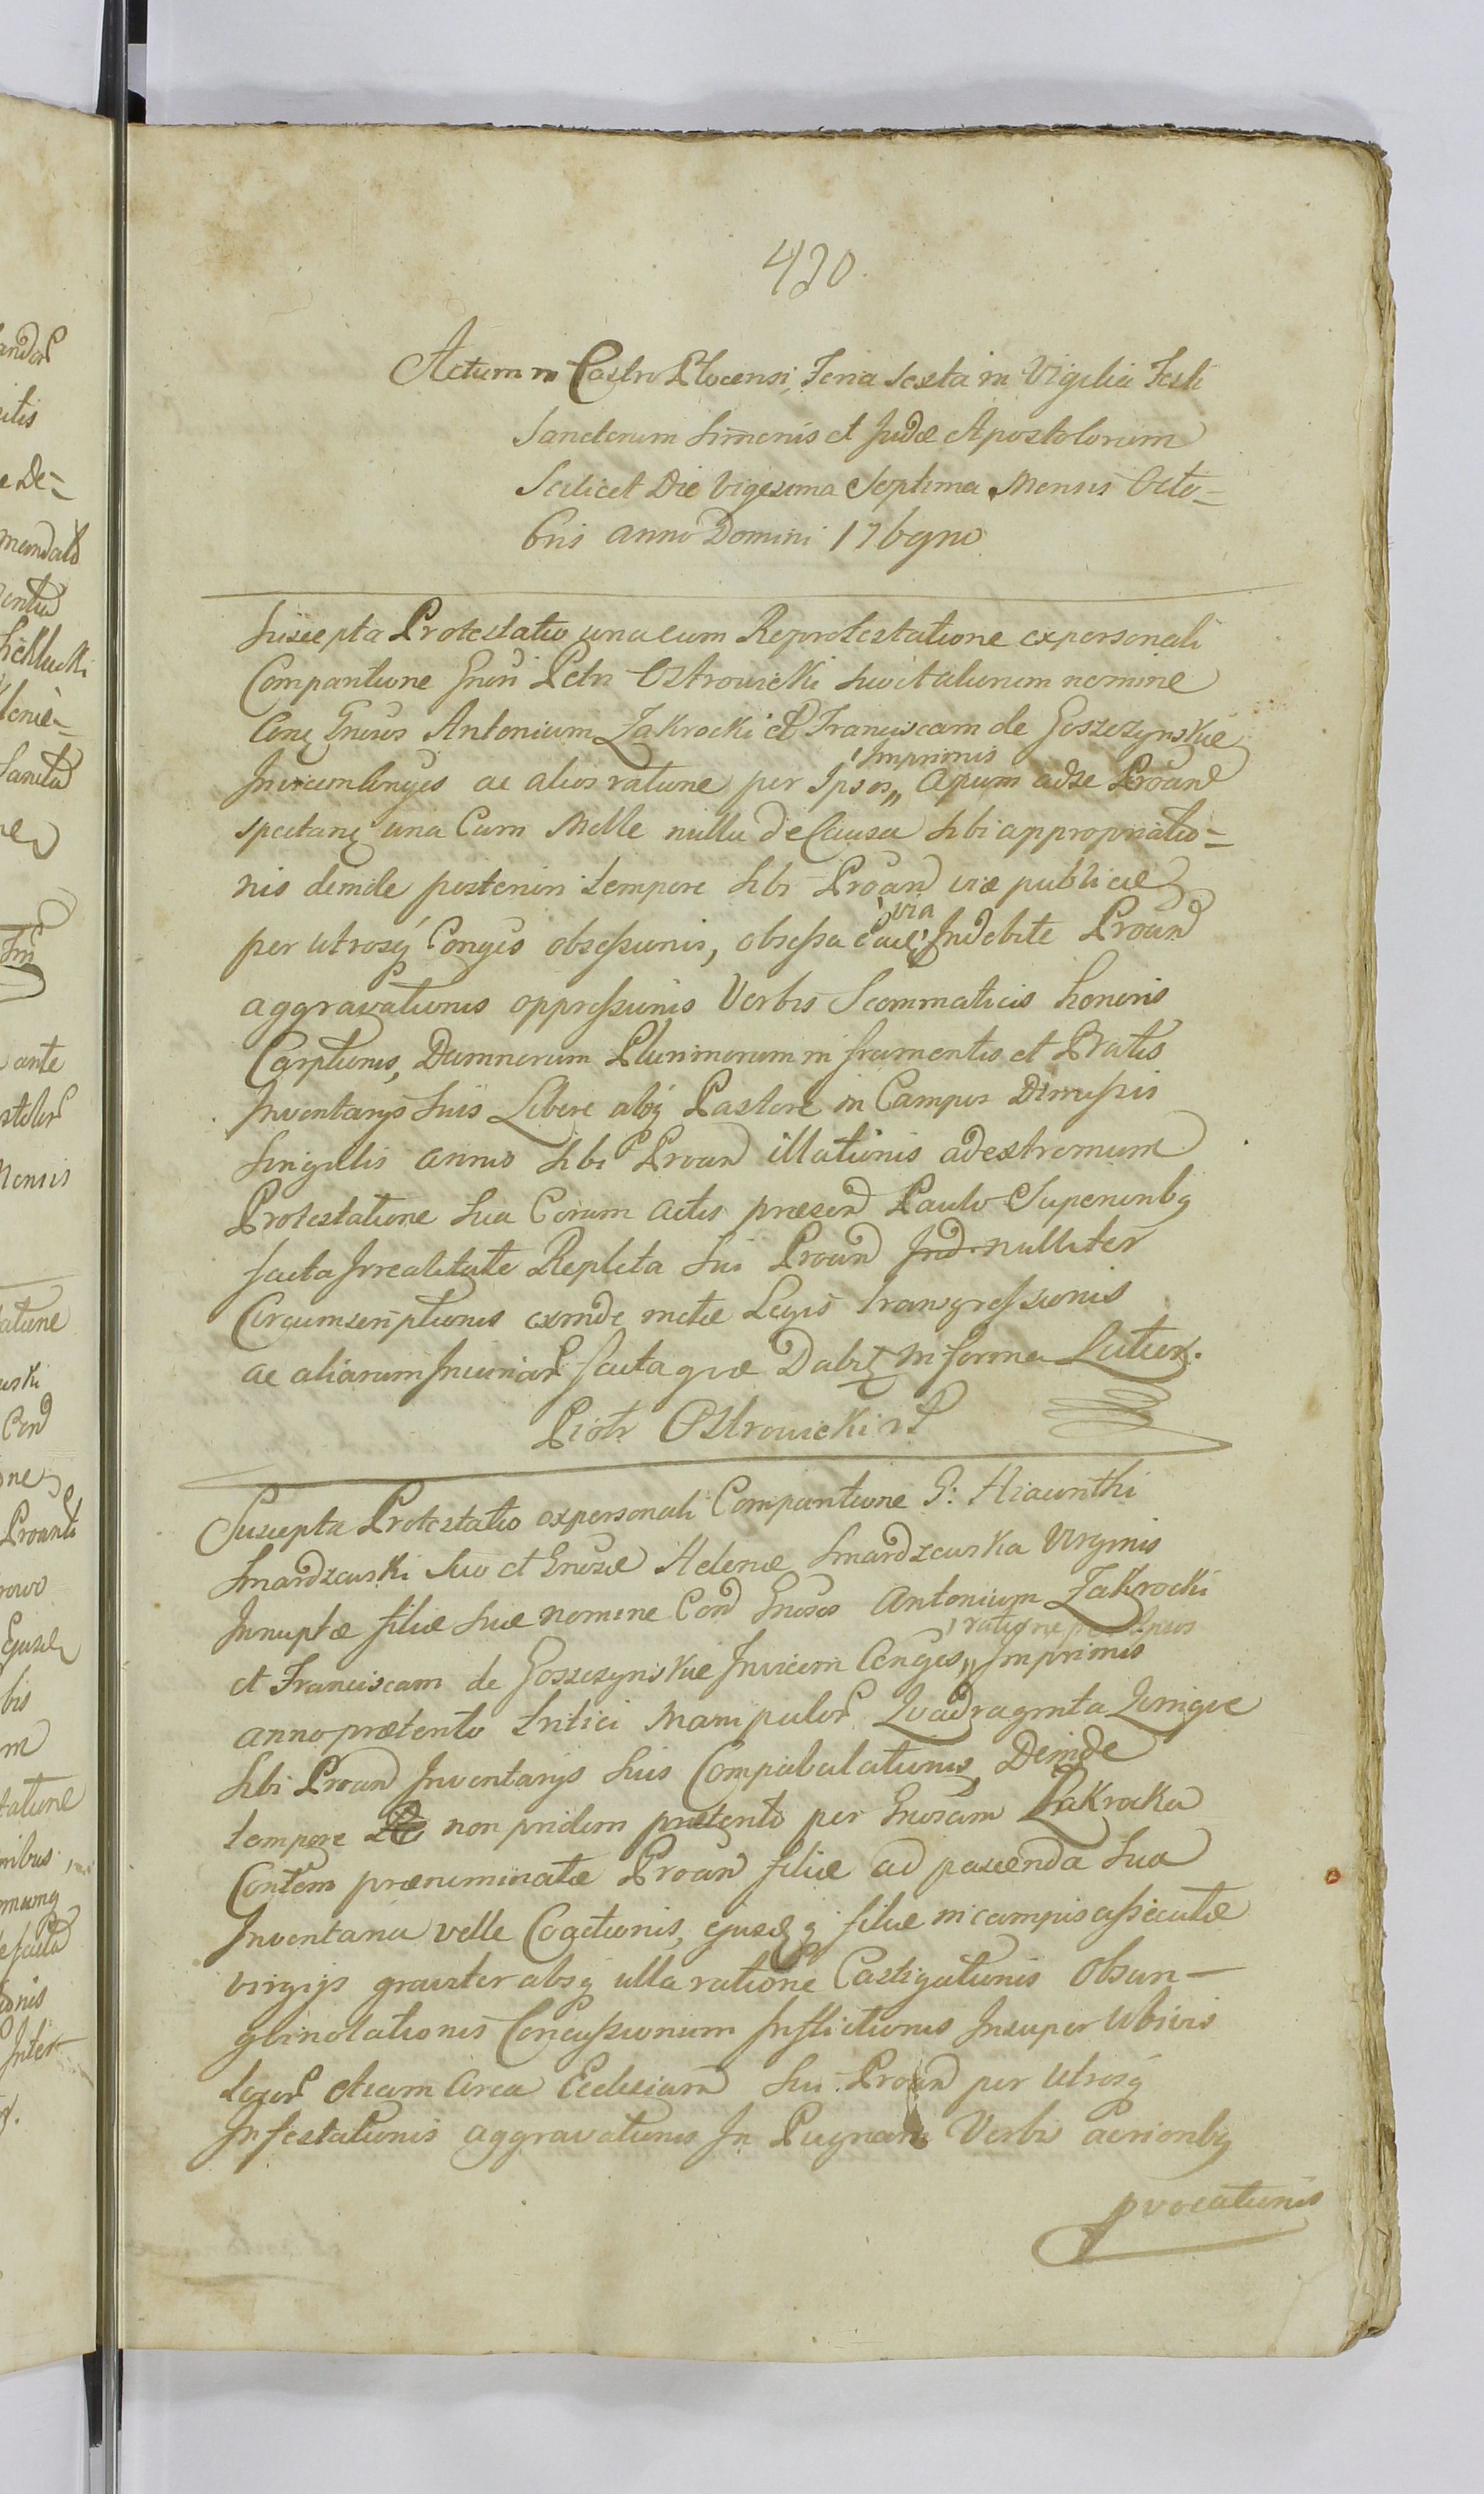 420.
Actum in Castro Plocensi, Feria Sexta in Vigilia Festi
Sanctorum Simonis et Judæ Apostolorum
Scilicet Die Vigesima Septima Mensis Octo=
bris anno Domini 176gmo
Suscepta Protestatio una cum Reprotestatione ex personali
Comparitione Gnosi Petri Ostrowicki suo et aliorum nomine
Con Gnosos Antonium Zakrocki et Franciscam de Goszczynskie
Invicem Conges ac alios ratione per Ipsos,, Imprimis Apum ad se Proan
spectan una Cum Melle nulla de Causa sibi appropriatio=
nis deinde posteriori tempore sibi Proan viæ publicæ
per utrosq Conges obsessionis, obsessa eaq via Indebite Proan
aggravationis oppressionis Verbis Scommaticis honoris
Carptionis, Damnorum Plurimorum in frumentis et Pratis
Inventarijs Suis Libere absq Pastore in Campos Dimissis
Singulis annis sibi Proan illationis ad extremum
Protestatione sua Coram actis præsen Paulo Superionbq
facta Irrealitate Repleta sui Proan Ind nulliter
Circumscriptionis exinde metæ Legis transgressionis
ac aliarum Iniuriar facta quæ Dabit in forma Latior.
Piotr Ostrowicki
Suscepta Protestatio ex personali Comparitione G: Hiacinthi
Smardzewski suo et Gnosæ Helenæ Smardzewska Virginis
Innuptæ filiæ suæ nomine Con Gnosos Antonium Zakrocki
et Franciscam de Goszczynskie Invicem Conges,, ratione per Ipsos Imprimis
anno prætento tritici Manipulor Quadraginta Quinque
sibi Proan Inventarijs Suis Compabulationis, Deinde
tempore non pridem prætento per Gnosam Zakrocka
Contem prænominatæ Proan filiæ ad pascenda sua
Inventaria velle Coactionis, ejusdq filiæ in campis assecutæ
virgijs graviter absq ulla ratione Castigationis Obsan-
gvinolationis Concussionum Inflictionis Insuper Ubivis
locor etiam Circa Ecclesiam sui Proan per Utrosq
Infestationis aggravationis In Pugnam Verbis acrioribq
pvocationis